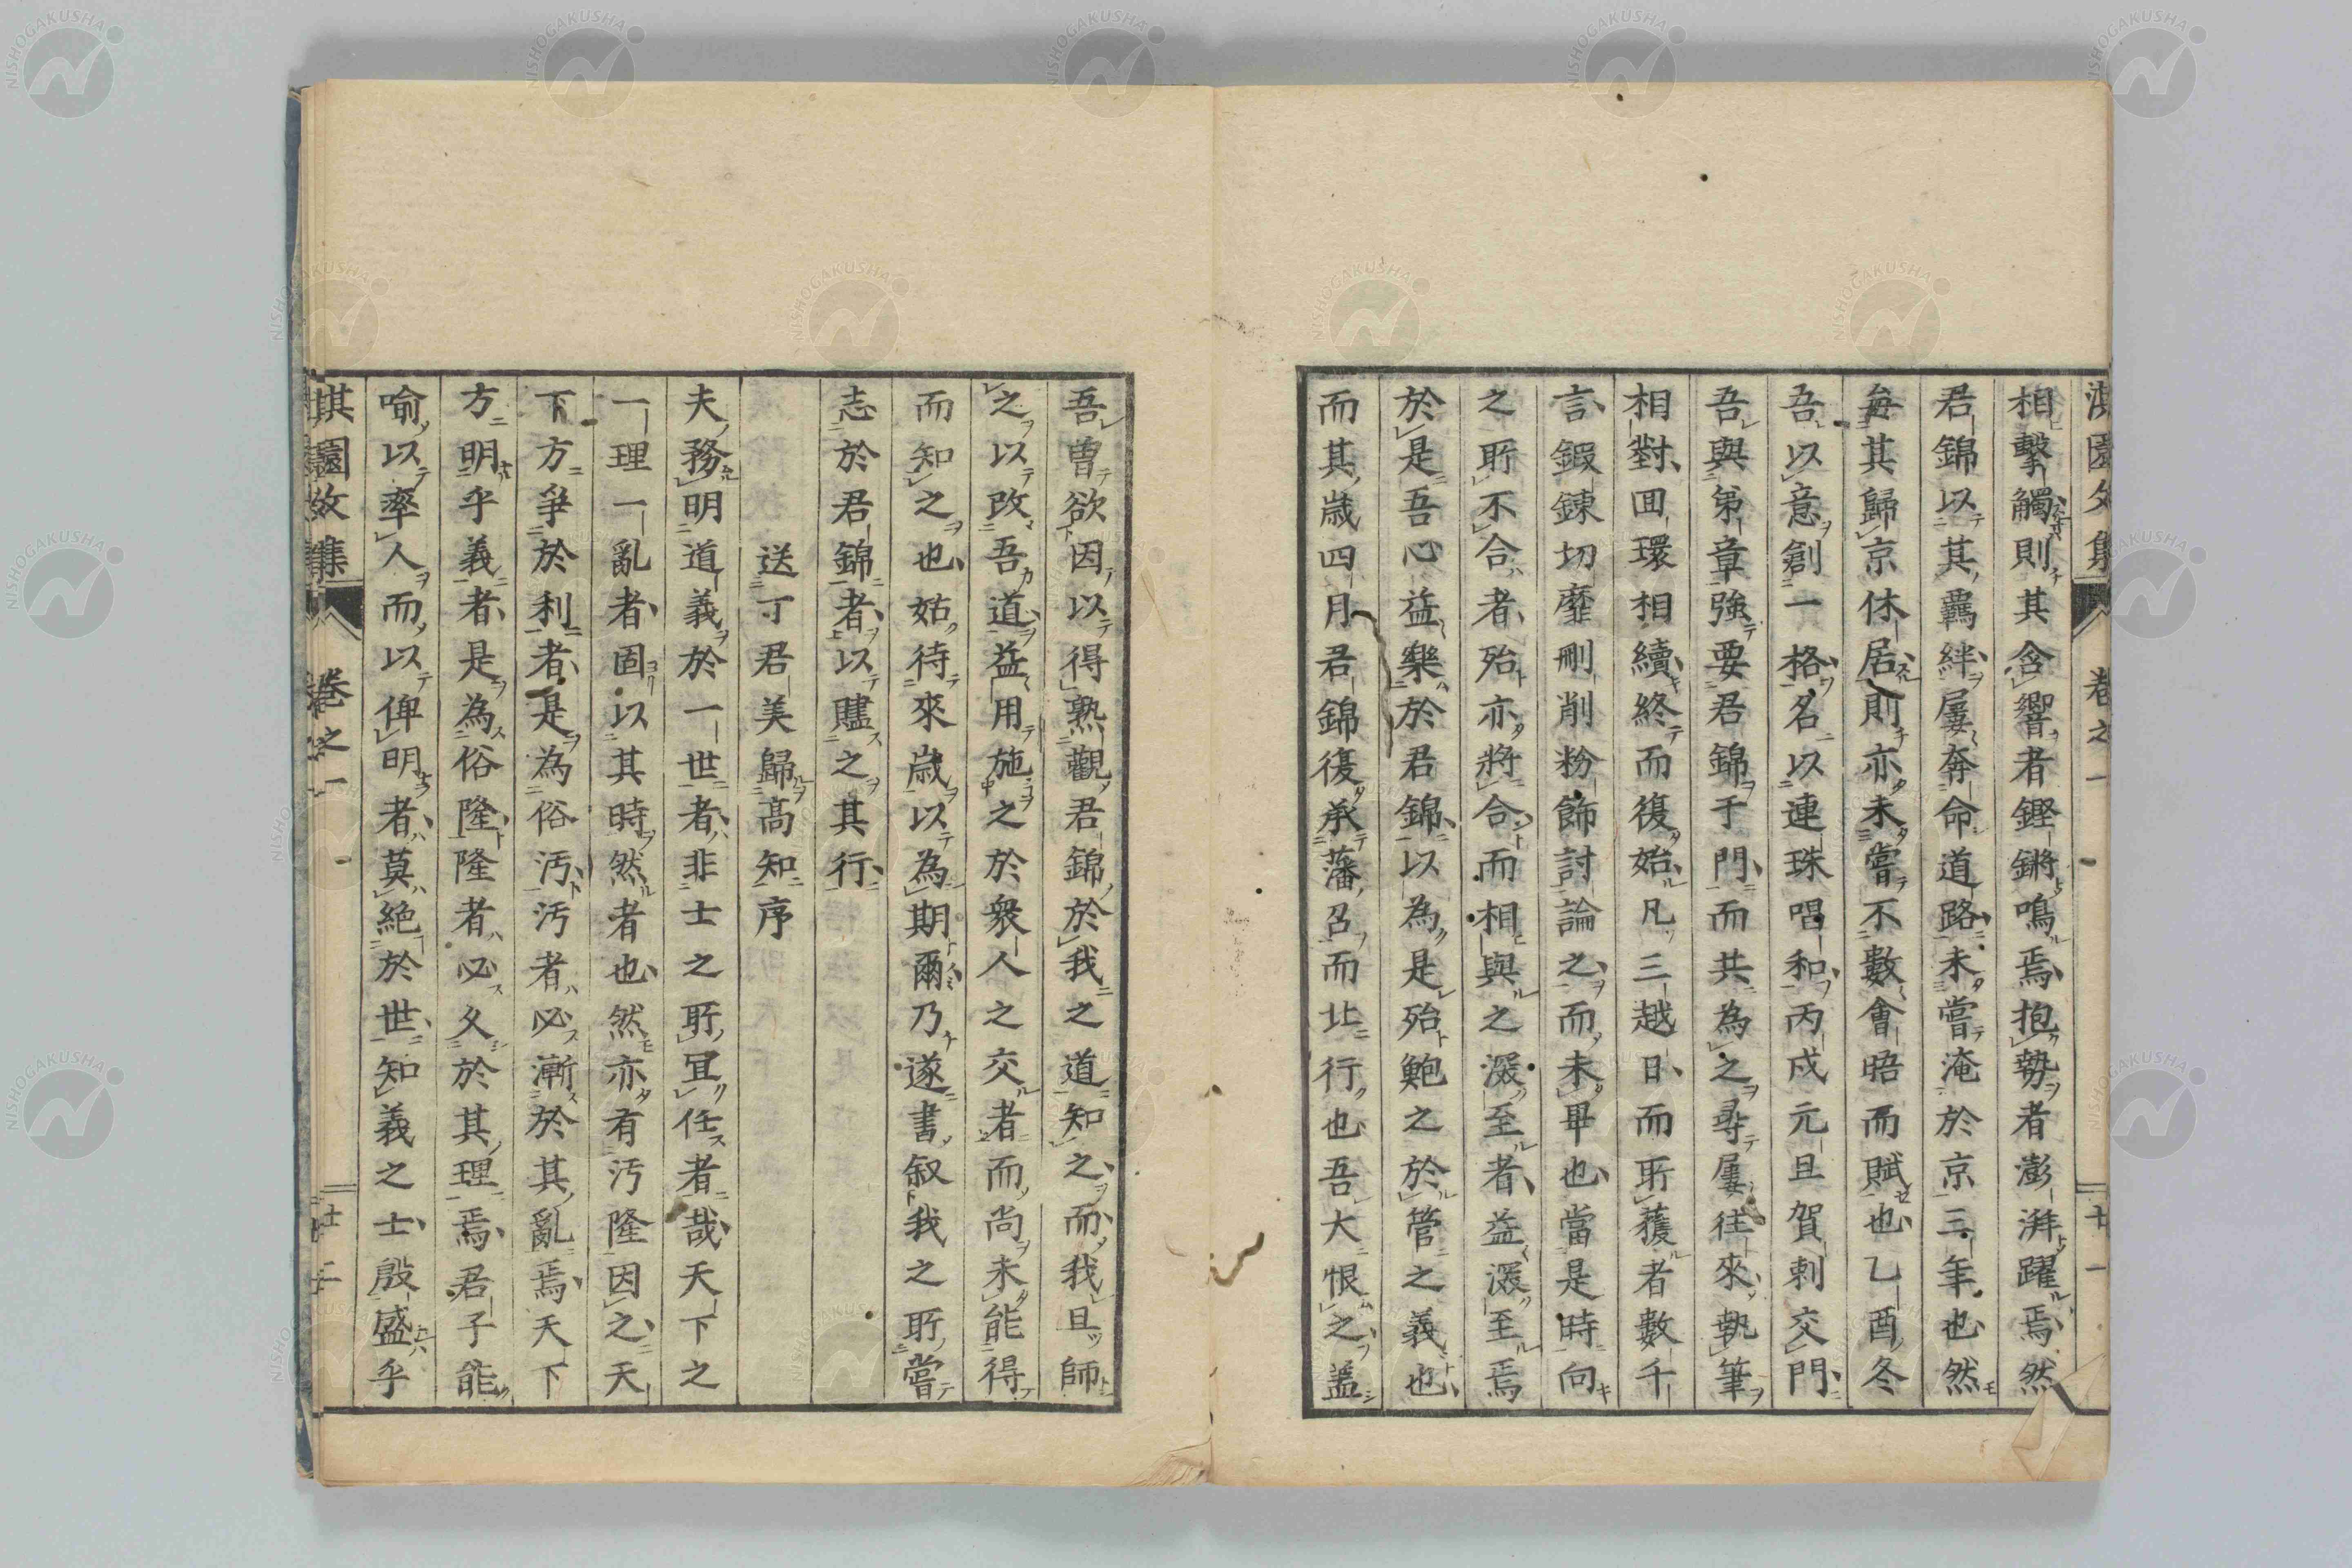 淇園文集 卷之一 十一
相擊觸則其含響者鏗鏘鳴焉抱勢者澎湃躍焉然
君錦以其羈絆屢奔命道路未嘗淹於京三年也然
每其歸京休居則亦未嘗不數會晤而賦也乙酉冬
吾以意創一格名以連珠唱和丙戍元旦賀刺交門
吾與第章強要君錦于門而共為之尋屢往來執筆
相對回環相續終而復始凡三越日而所獲者數千
言鍜鍊切靡刪削粉飾討論之而未畢也當是時向
之所不合者殆亦將合而相與之深至者益深至焉
於是吾心益樂於君錦以為是殆鮑之於管之義也
而其歲四月君錦復承藩召而北行也吾大恨之蓋
吾曽欲因以得熟觀君錦於我之道知之而我且師
之以改吾道益用施之於衆人之交者而尚未能得
而知之也姑待來歲以為期爾乃遂書叙我之所嘗
志於君錦者以贐之其行
送丁君美歸高知序
夫務明道義於一世者非士之所宜任者哉天下之
一理一亂者固以其時然者也然亦有汚隆因之天
下方爭於利者是為俗汚汚者必漸於其亂焉天下
方明乎義者是為俗隆隆者必久於其理焉君子能
喻以率人而以俾明者莫絕於世知義之士殷盛乎
淇園文集 卷之一 十二
NISHOGAKUSHA